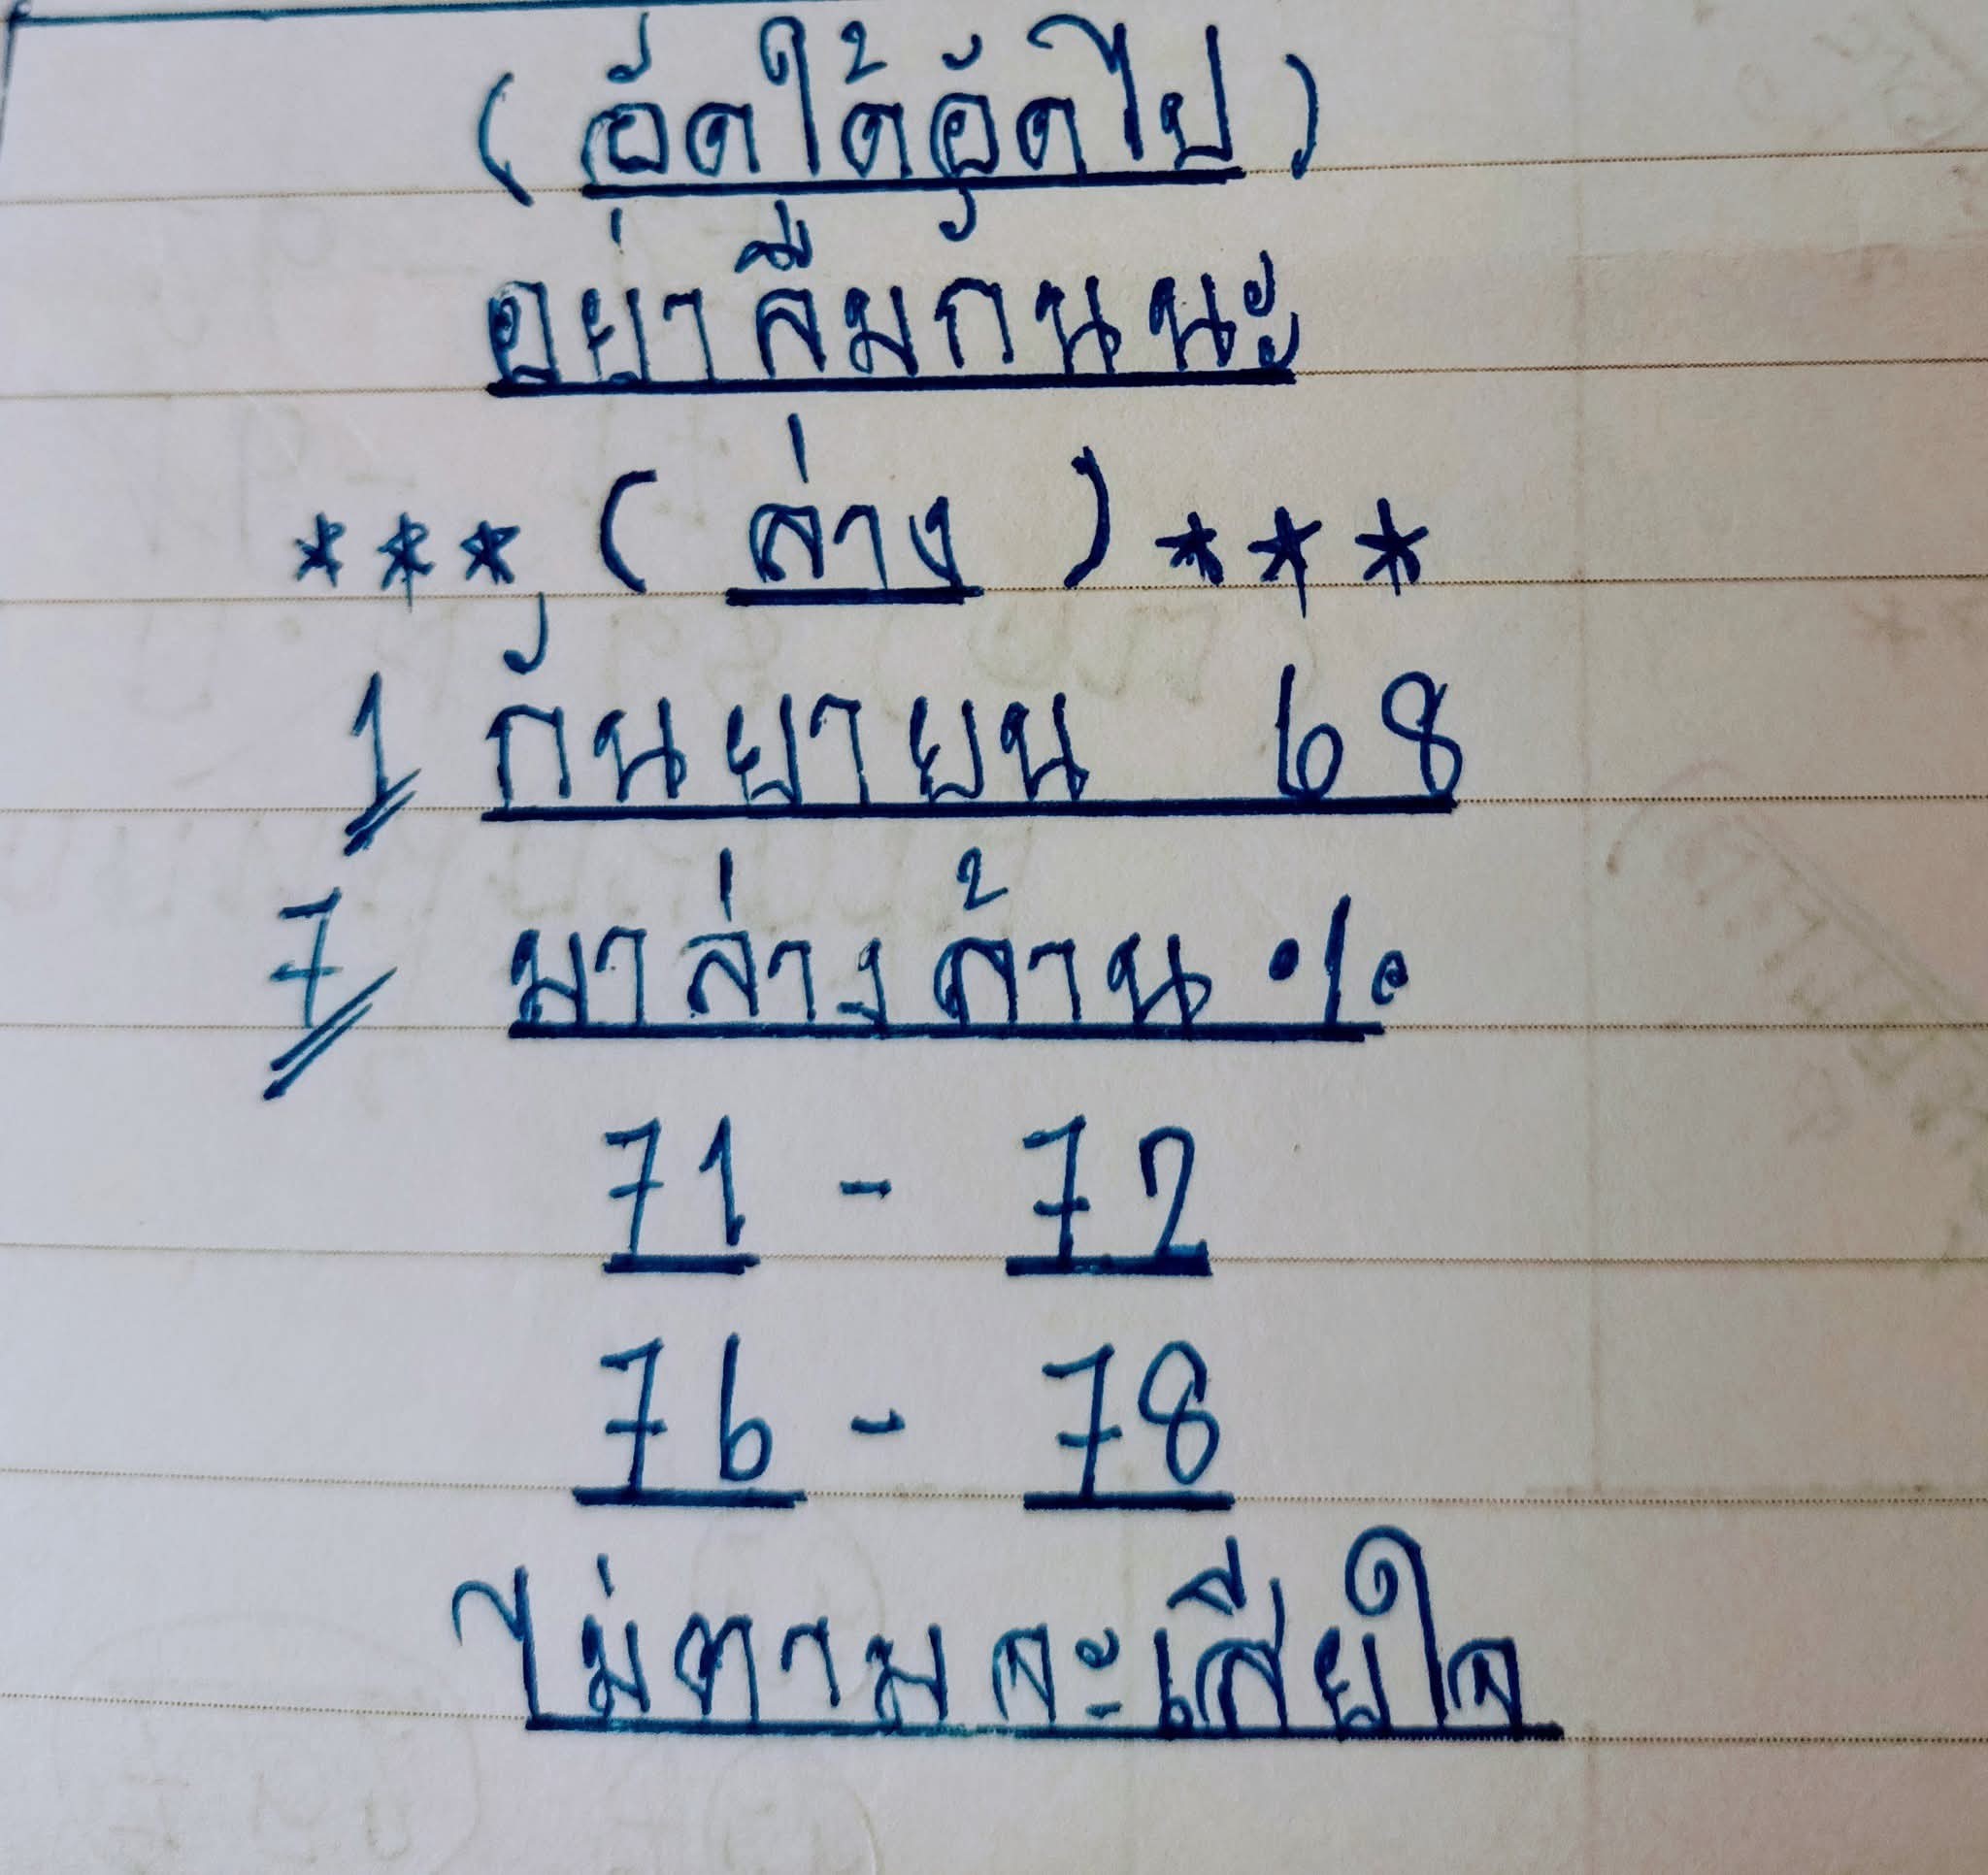 (อัดได้อัดไป)
อย่าลืมกันนะ
*** (ล่าง) ***
1 กันยายน 68
7 มาล่างล้าน %
71 - 72
76 - 78
ไม่ตามจะเสียใจ